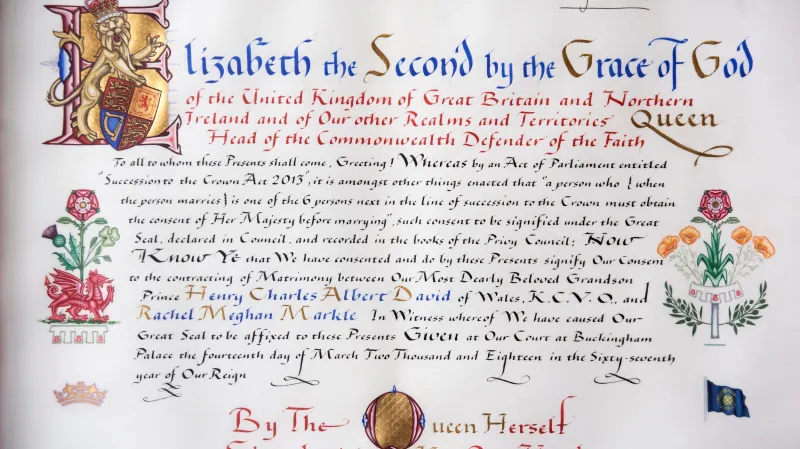 Elizabeth the Second by the Grace of God
of the United Kingdom of Great Britain and Northern
Ireland and of Our other Realms and Territories Queen
Head of the Commonwealth Defender of the Faith
To all to whom these Presents shall come, Greeting! Whereas by an Act of Parliament entitled
"Succession to the Crown Act 2013", it is amongst other things enacted that "a person who { when
the person marries } is one of the 6 persons next in the line of succession to the Crown must obtain
the consent of Her Majesty before marrying", such consent to be signified under the Great
Seal, declared in Council, and recorded in the books of the Privy Council; Now
Know Ye that We have consented and do by these Presents signify Our Consent
to the contracting of Matrimony between Our Most Dearly Beloved Grandson
Prince Henry Charles Albert David of Wales, K.C.V.O., and
Rachel Meghan Markle In Witness whereof We have caused Our
Great Seal to be affixed to these Presents Given at Our Court at Buckingham
Palace the fourteenth day of March Two Thousand and Eighteen in the Sixty-seventh
year of Our Reign
By The Queen Herself